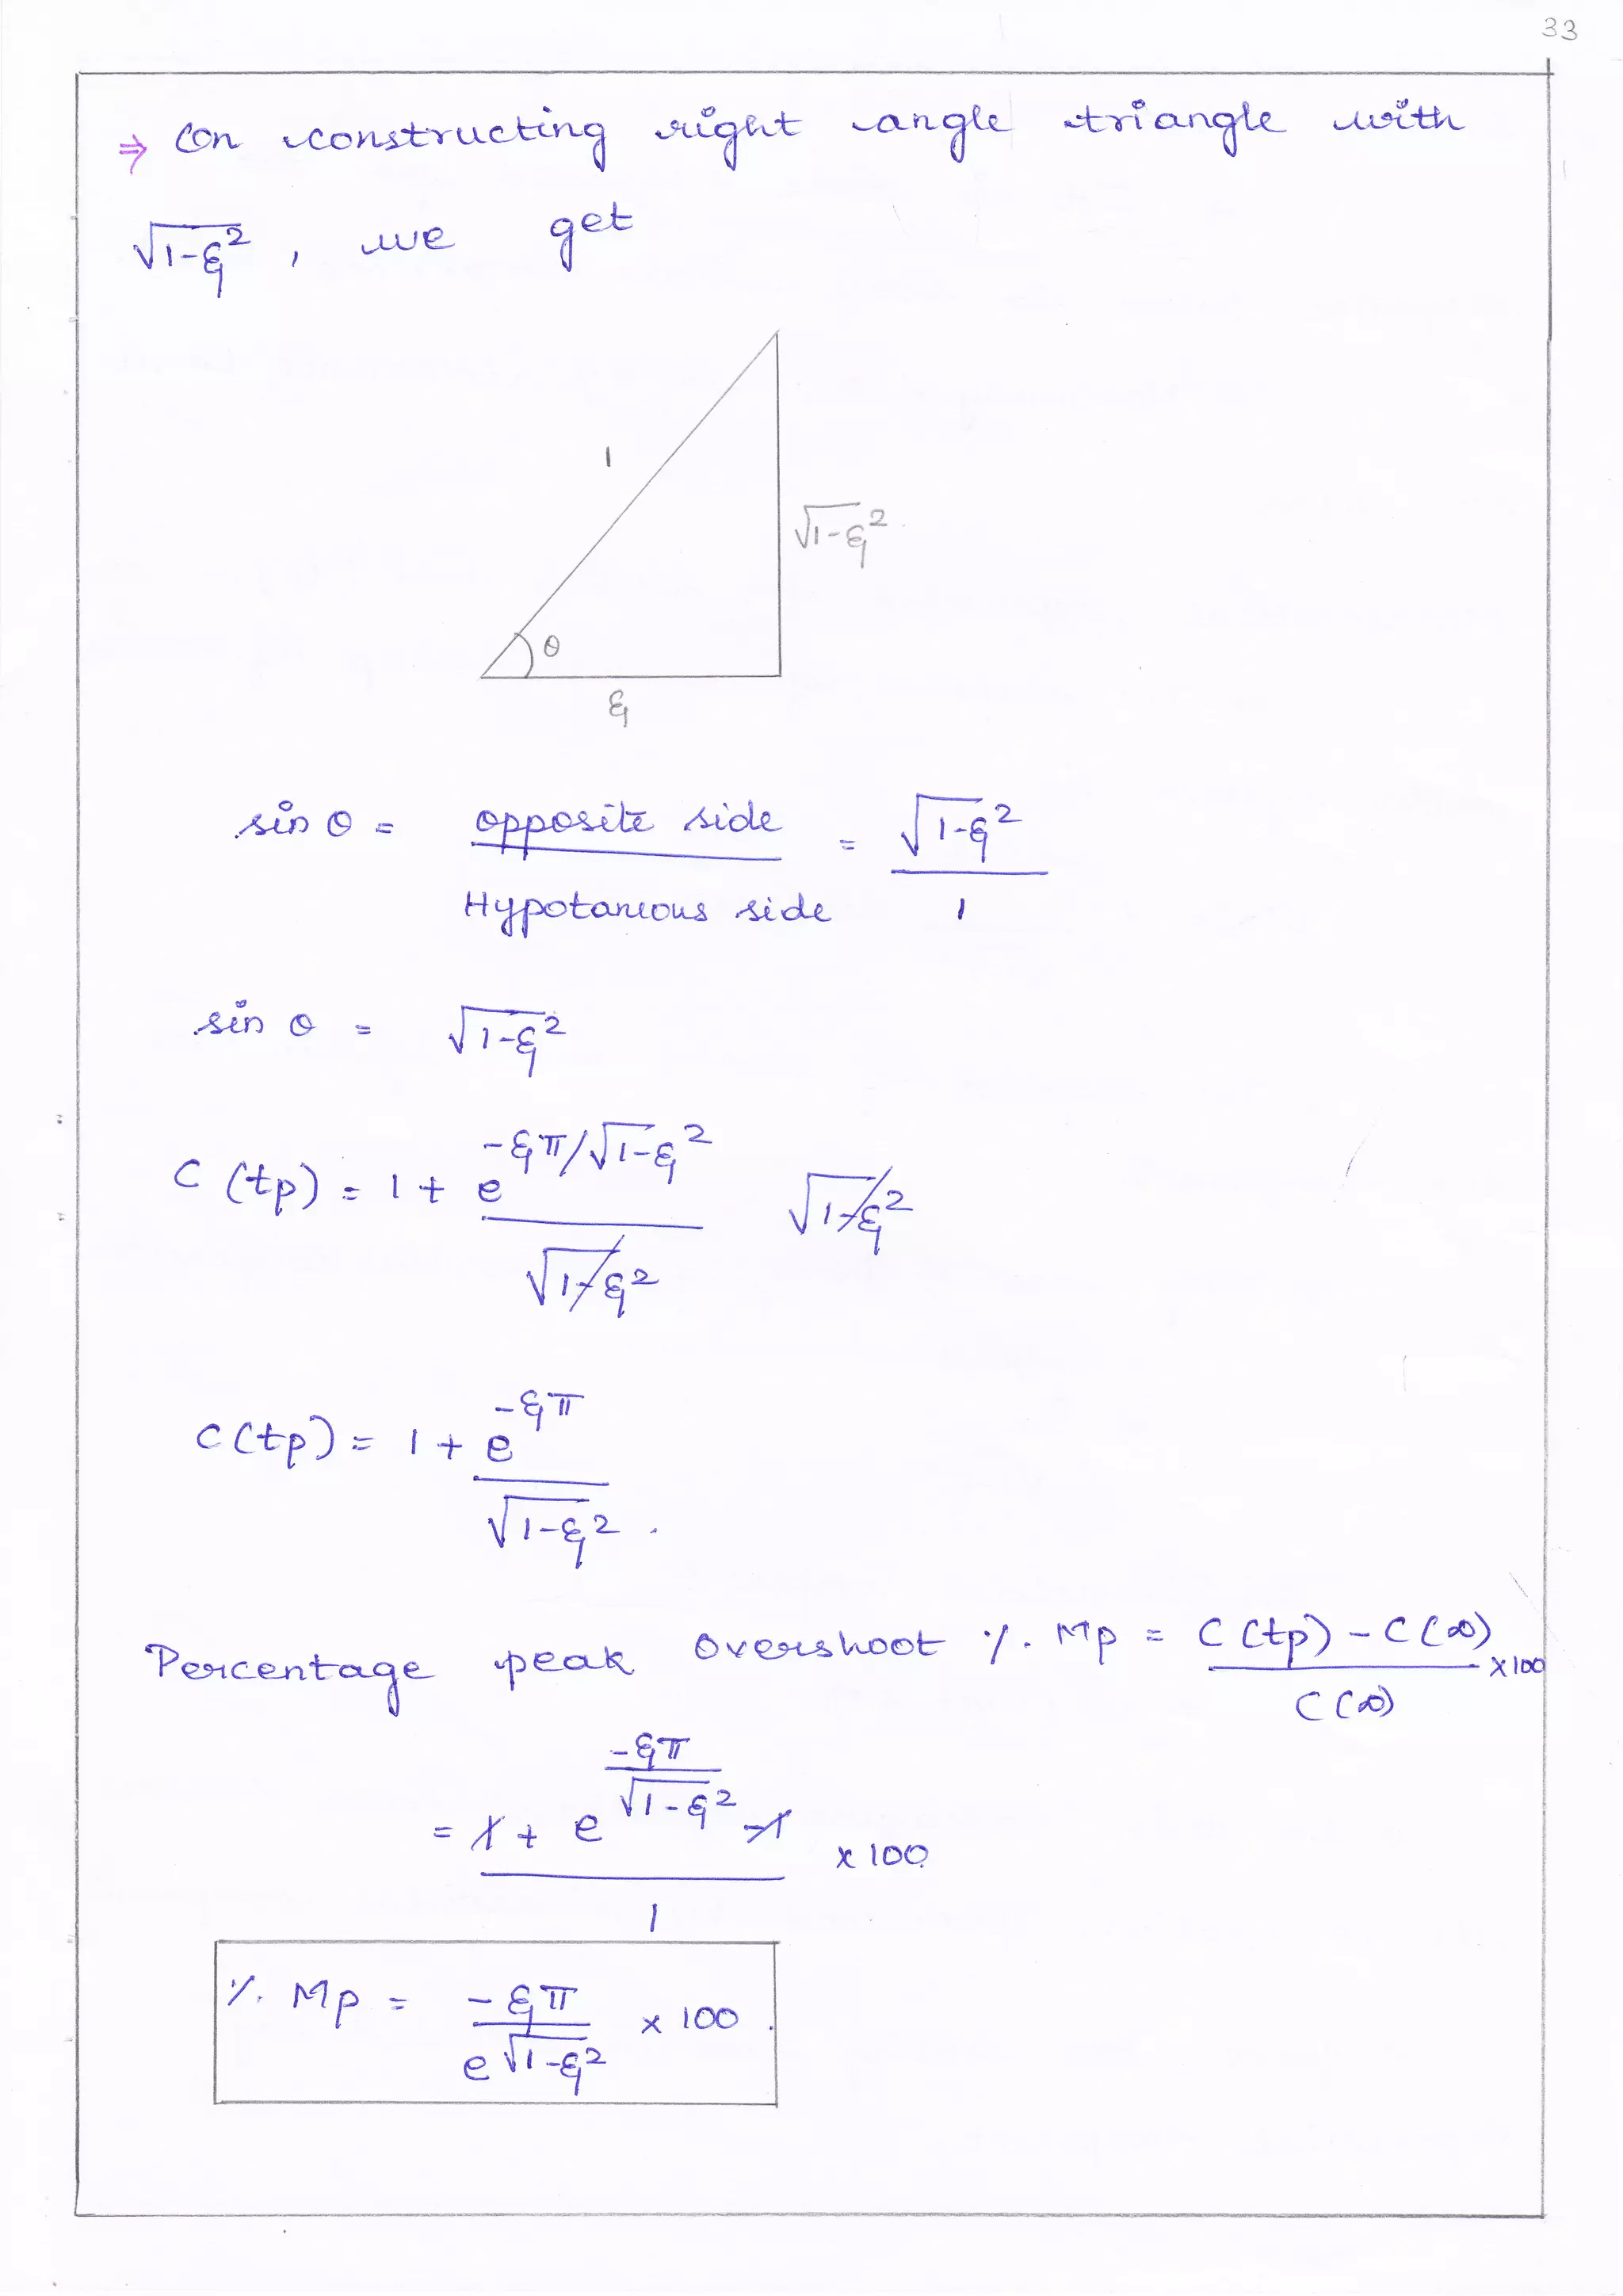 33
⇒ On constructing right angle triangle with
√1-ξ², we get
1
√1-ξ²
θ
ξ
sin θ = opposite side / Hypotaneous side = √1-ξ² / 1
sin θ = √1-ξ²
C (tp) = 1 + e^(-ξπ/√1-ξ²) / √1-ξ² √1-ξ²
C (tp) = 1 + e^(-ξπ) / √1-ξ² .
Percentage peak Overshoot %. Mp = C (tp) - C (∞) / C (∞) × 100
= 1 + e^(-ξπ / √1-ξ²) - 1 / 1 × 100
%. Mp = -ξπ / e √1-ξ² × 100 .